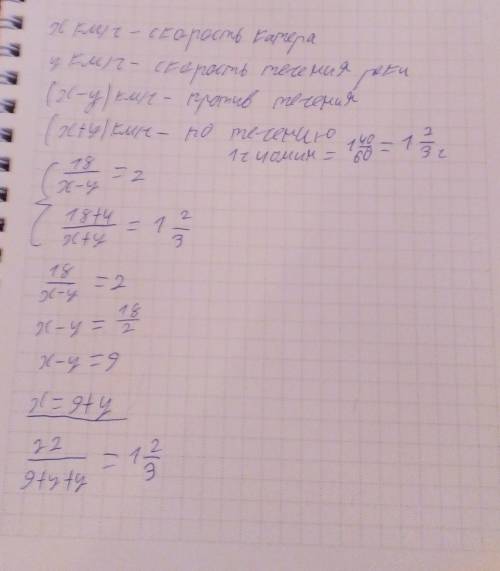 x км/ч - скорость катера
y км/ч - скорость течения реки
(x-y) км/ч - против течения
(x+y) км/ч - по течению
1ч 40мин = 1 40/60 = 1 2/3 ч
{ 18/(x-y) = 2
(18+4)/(x+y) = 1 2/3
18/(x-y) = 2
x-y = 18/2
x-y = 9
x = 9+y
22/(9+y+y) = 1 2/3